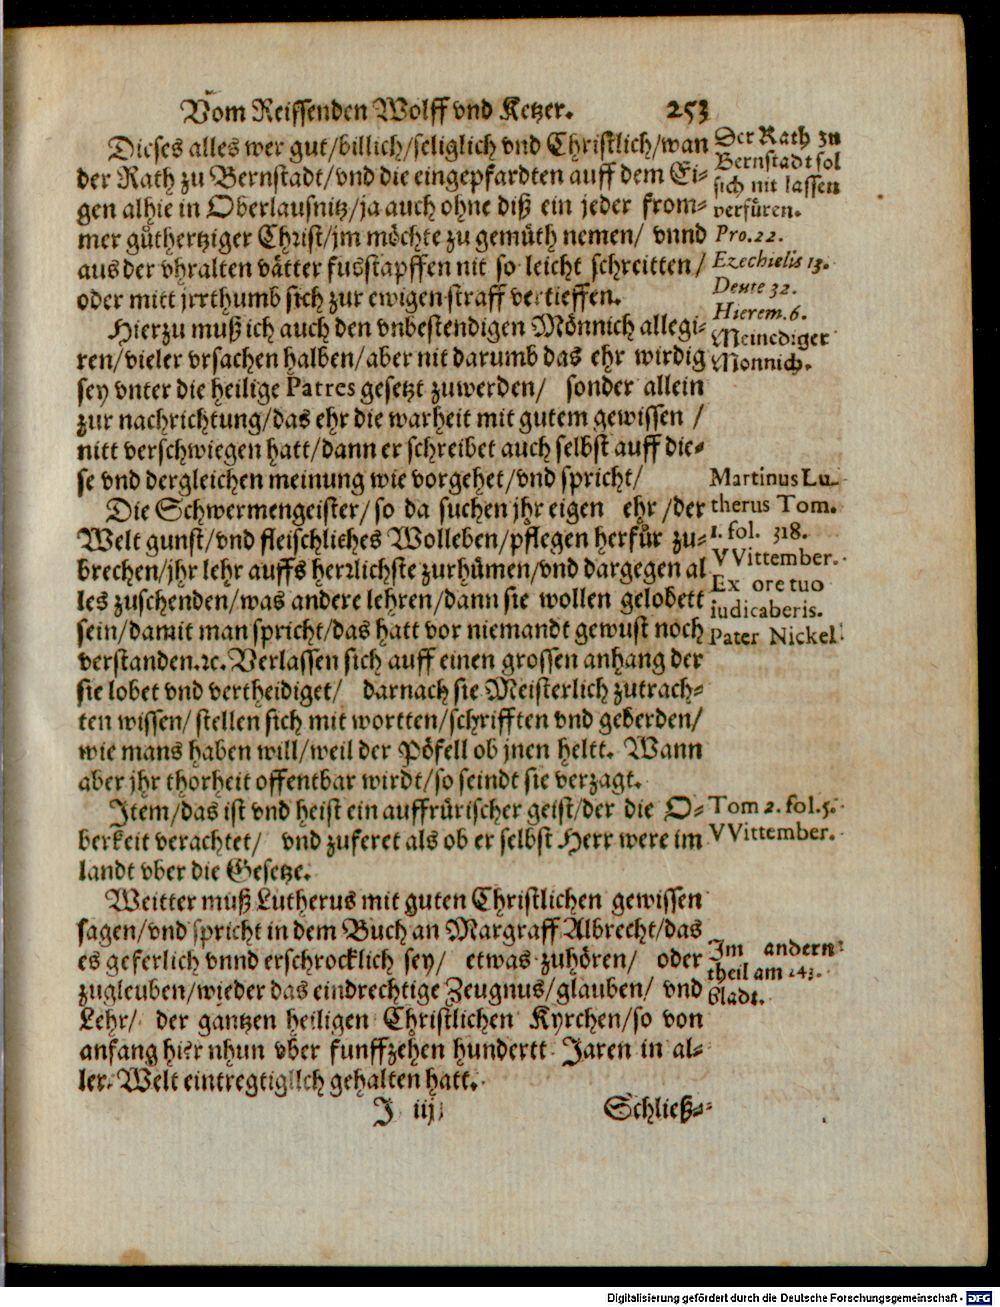 Vom Reissenden Wolff vnd Ketzer. 253
Dieses alles wer gut/billich/seliglich vnd Christlich/wan
der Rath zu Bernstadt/vnd die eingepfardten auff dem Ei-
gen alhie in Oberlausnitz/ja auch ohne diß ein jeder from-
mer gůthertziger Christ/jm möchte zu gemüth nemen/ vnnd
aus der vhralten vätter fusstapffen nit so leicht schreitten/
oder mitt jrrthumb sich zur ewigen straff vertieffen.
Der Rath zu
Bernstadt sol
sich nit lassen
verfüren.
Pro. 22.
Ezechielis 13.
Deute 32.
Hierem. 6.
Hierzu muß ich auch den vnbestendigen Mönnich allegi-
ren/vieler vrsachen halben/aber nit darumb das ehr wirdig
sey vnter die heilige Patres gesetzt zuwerden/ sonder allein
zur nachrichtung/das ehr die warheit mit gutem gewissen /
nitt verschwiegen hatt/dann er schreibet auch selbst auff die-
se vnd dergleichen meinung wie vorgehet/vnd spricht/
Meinediger
Monnich.
Die Schwermengeister/so da suchen jhr eigen ehr/der
Welt gunst/vnd fleischliches Wolleben/pflegen herfůr zu-
brechen/jhr lehr auffs herrlichste zurhümen/vnd dargegen al
les zuschenden/was andere lehren/dann sie wollen gelobett
sein/damit man spricht/das hatt vor niemandt gewust noch
verstanden.ꝛc.Verlassen sich auff einen grossen anhang der
sie lobet vnd vertheidiget/ darnach sie Meisterlich zutrach-
ten wissen/stellen sich mit wortten/schrifften vnd geberden/
wie mans haben will/weil der Pöfell ob jnen heltt. Wann
aber jhr thorheit offentbar wirdt/so seindt sie verzagt.
Martinus Lu-
therus Tom.
1. fol. 318.
VVittember.
Ex ore tuo
iudicaberis.
Pater Nickel.
Item/das ist vnd heist ein auffrürischer geist/der die O-
berkeit verachtet/ vnd zuferet als ob er selbst Herr were im
landt vber die Gesetze.
Tom 2. fol. 5.
VVittember.
Weitter muß Lutherus mit guten Christlichen gewissen
sagen/vnd spricht in dem Buch an Margraff Albrecht/das
es geferlich vnnd erschrocklich sey/ etwas zuhören/ oder
zugleuben/wieder das eindrechtige Zeugnus/glauben/ vnd
Lehr/ der gantzen heiligen Christlichen Kyrchen/so von
anfang hier nhun vber funffzehen hundertt Jaren in al-
ler Welt eintregtiglich gehalten hatt.
Im andern
theil am 243.
bladt.
J iij Schließ-
Digitalisierung gefördert durch die Deutsche Forschungsgemeinschaft - DFG